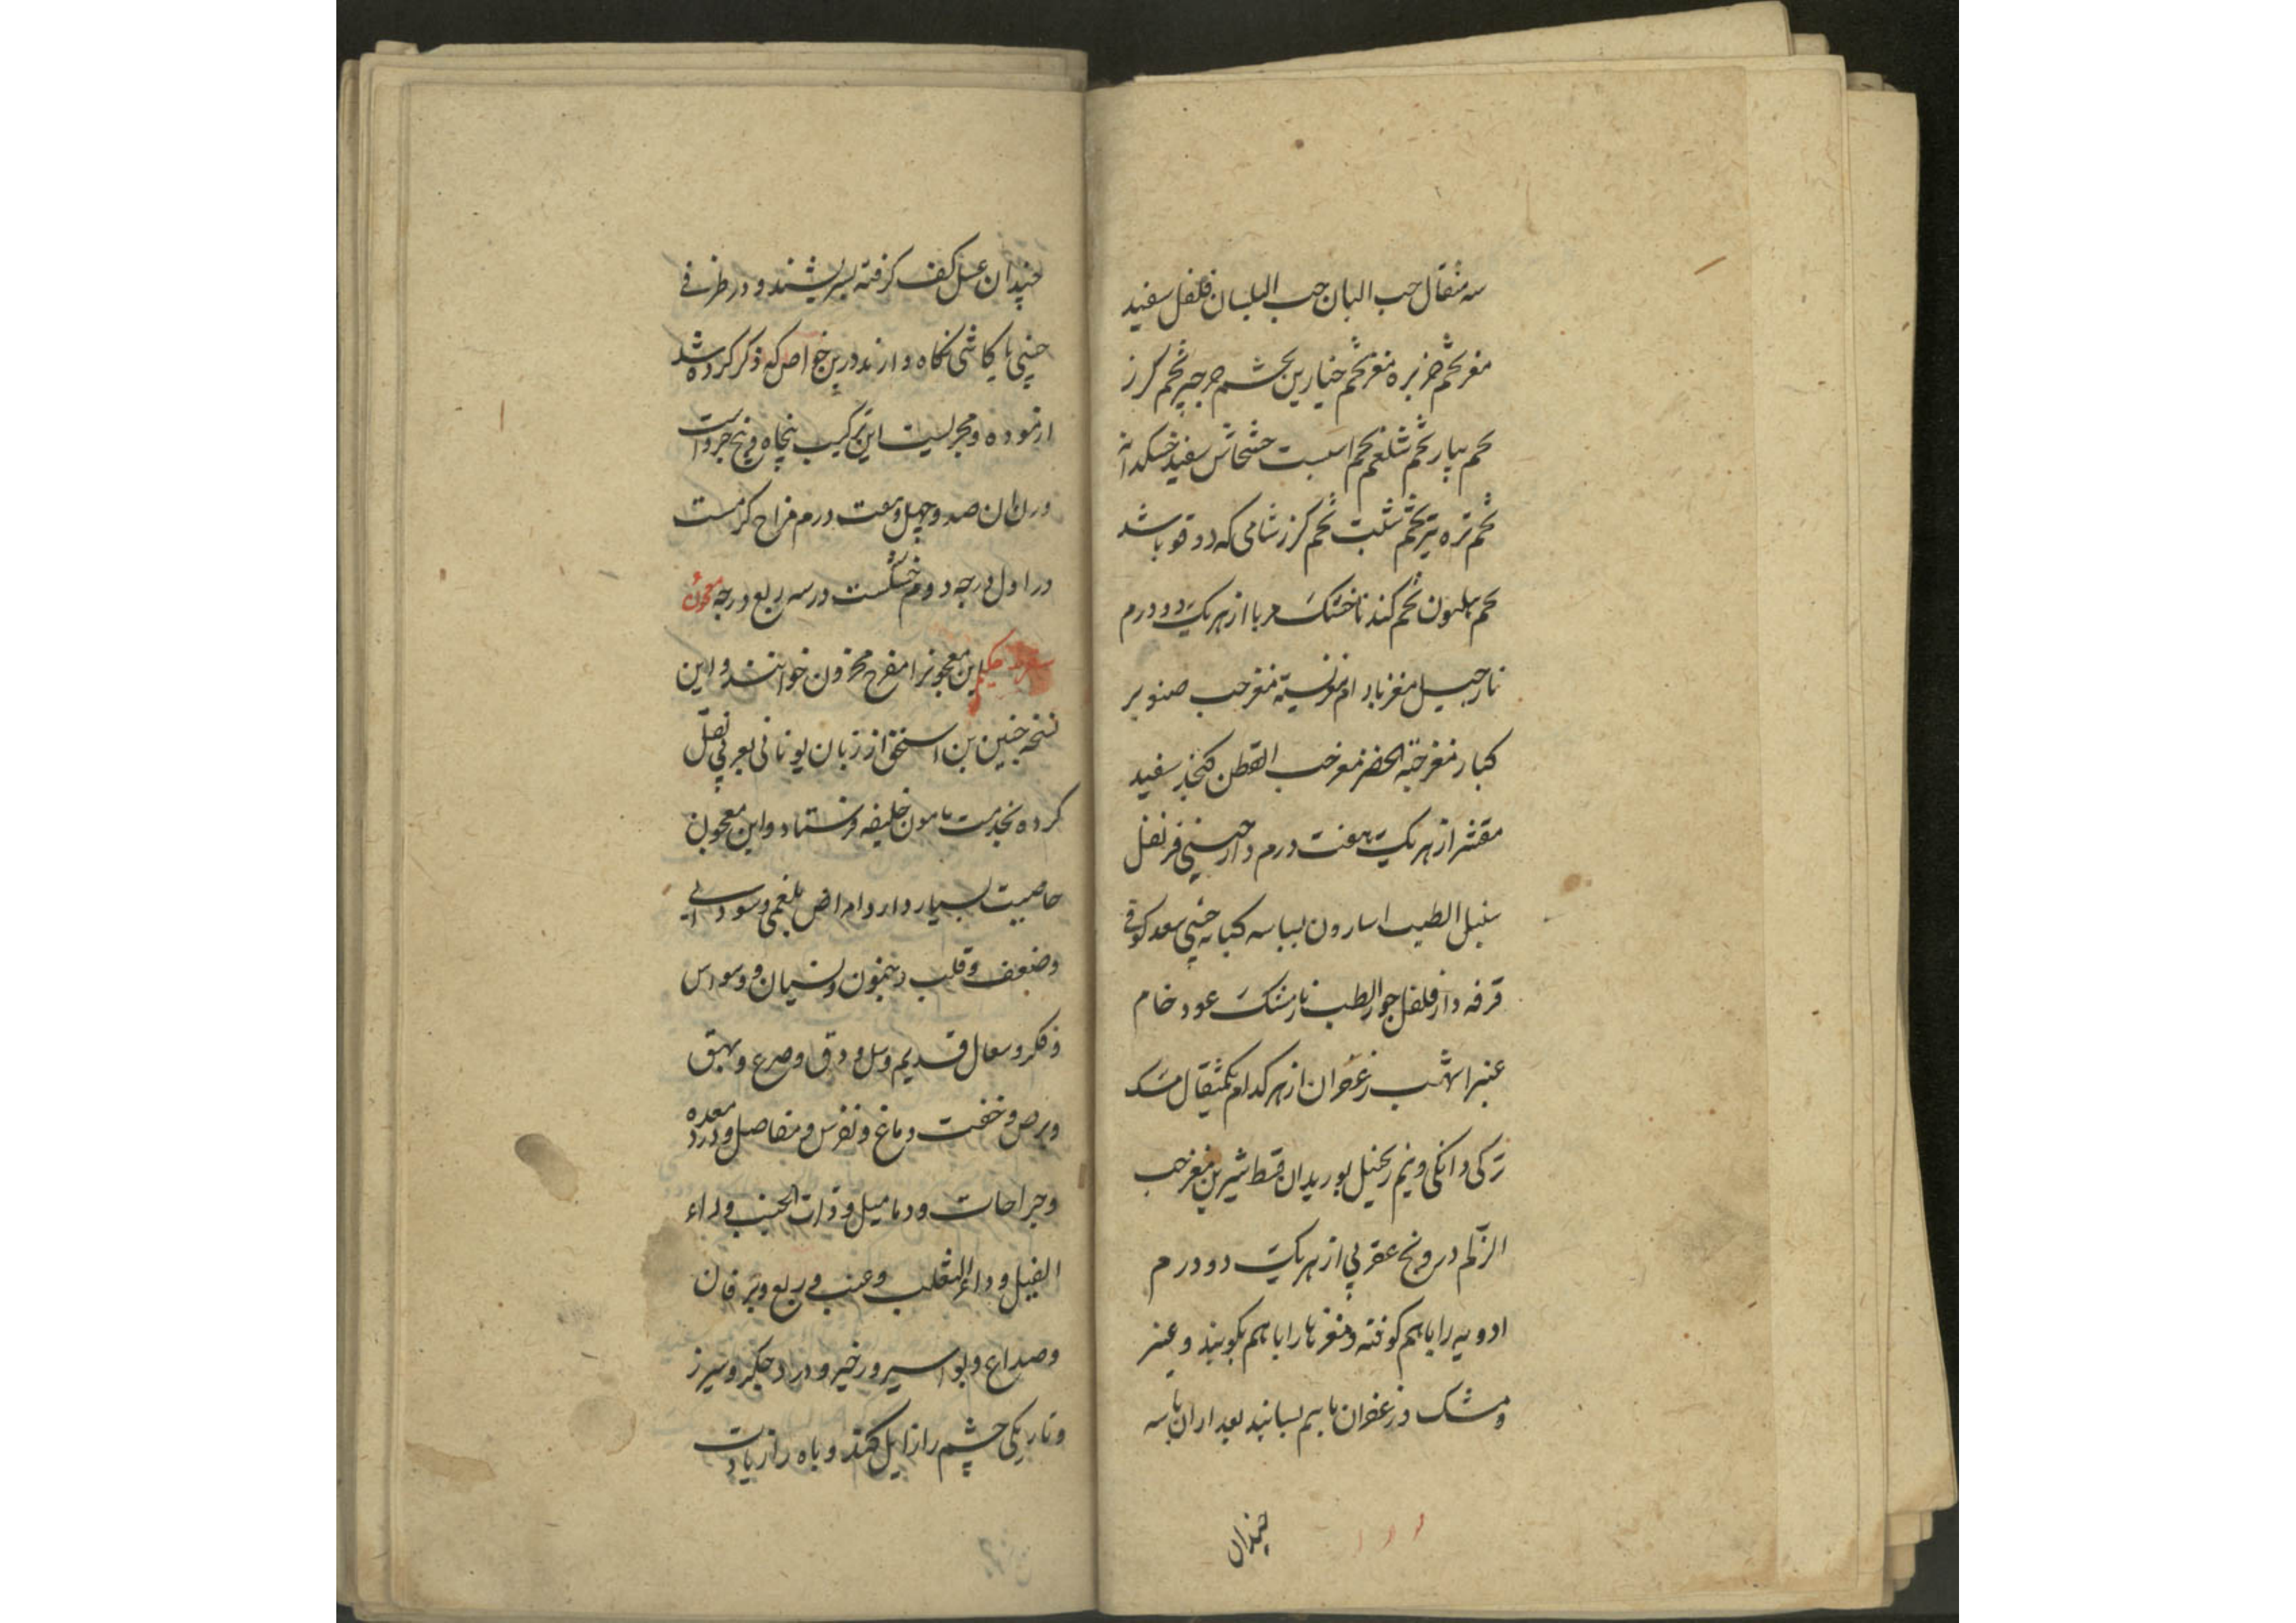 سه مثقال حب البان حب البلسان فلفل سفید
مغز تخم خربزه مغز تخم خیارین تخم جرجیر تخم گزر
تخم پیاز تخم شلغم تخم اسپست خشخاش سفید خسکدانه
تخم تره تیزک تخم شبت تخم گزر شامی که دوقو باشد
تخم هلیون تخم کندنا خشک مربا از هر یک دو درم
نارجیل مغز بادام مغز پسته مغز حب صنوبر
کبار مغز حبة الخضر مغز حب القطن کنجد سفید
مقشر از هر یک هفت درم دارچینی قرنفل
سنبل الطیب اسارون بسباسه کبابه چینی سعد کوفی
قرفه دارفلفل جوز الطیب نارمشک عود خام
عنبر اشهب زعفران از هر کدام یکمثقال مشک
ترکی دانکی و نیم زنجبیل بوریدان قسط شیرین مغز حب
الزلم درونج عقربی از هر یک دو درم
ادویه را باهم کوفته و مغزها را باهم بکوبند و عنبر
و مشک و زعفران باهم بسایند بعد ازان باسه
چندان
چندان عسل کف گرفته بسریشند و در ظرفی
چینی یا کاشی نگاه دارند درین خواص که ذکر کرده شد
ازموده و مجربست این ترکیب پنجاه و پنج جزو است
وزن ان صد و چهل و هفت درم مزاج گرمست
در اول درجه دوم خشکست در سه ربع درجه معجون
حکیم این معجون را مفرح مخزون خوانند و این
نسخه حنین بن اسحق از زبان یونانی بعربی نقل
کرده بخدمت مامون خلیفه فرستاد و این معجون
خاصیت بسیار دارد امراض بلغمی و سودایی
و ضعف و قلب و جنون و نسیان و وسواس
و فکر و سعال قدیم و سل و دق و صرع و بهق
و برص و خفت دماغ و نقرس و مفاصل و درد معده
و جراحات و دمامیل و ذات الجنب و داء
الفیل و داء الثعلب و غب و ربع و یرقان
و صداع و بواسیر و زحیر و درد جگر و سپرز
و تاریکی چشم را زایل کند و باه را زیادت